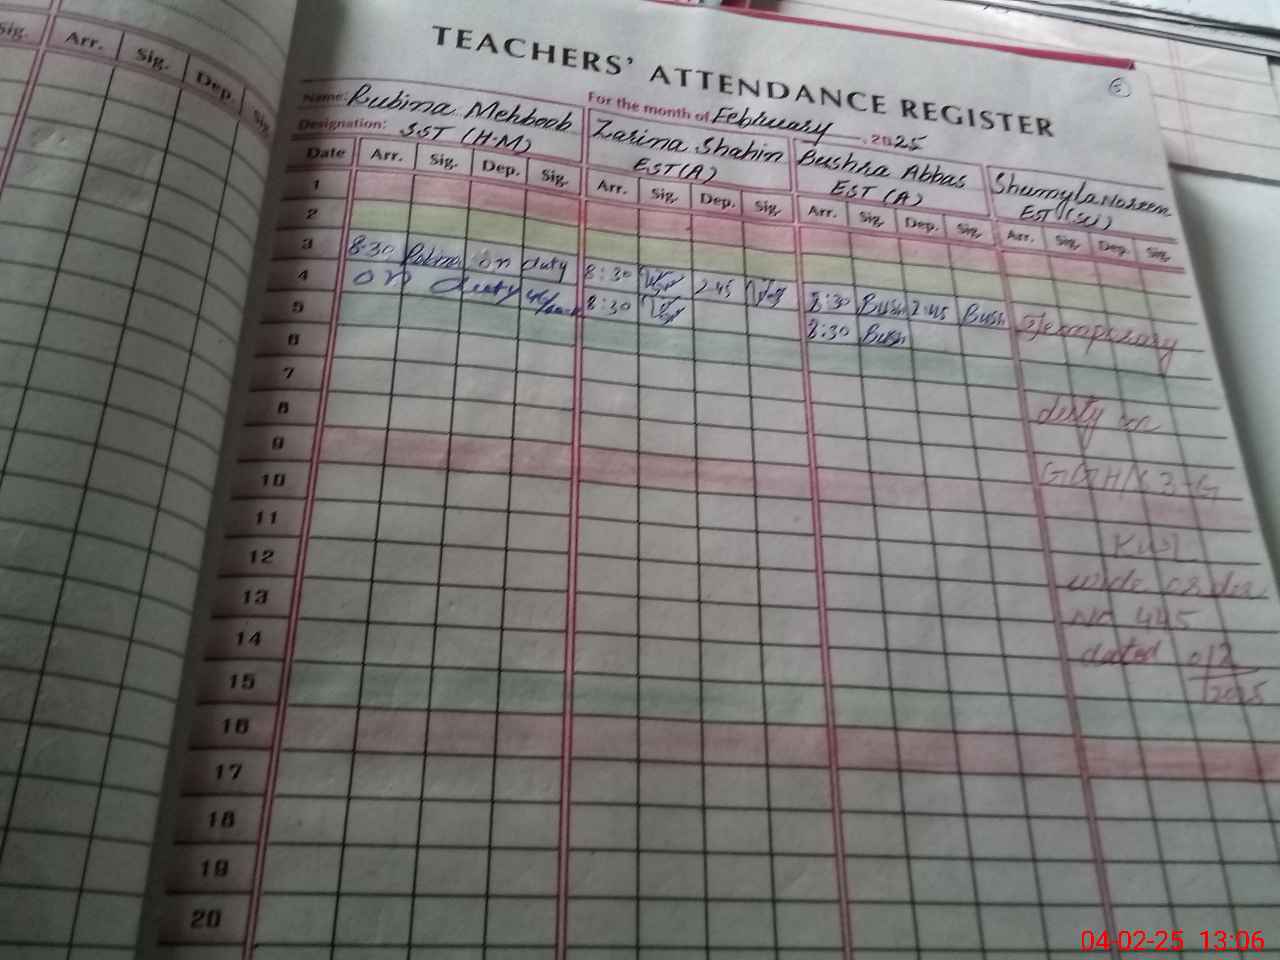 Sig. Arr. Sig. Dep. Sig.
TEACHERS' ATTENDANCE REGISTER
5
Name: Rubina Mehboob For the month of February, 2025
Designation: SST (H.M) Zarina Shahin Bushra Abbas Shumyla Noreen
EST (A) EST (A) EST (Sci)
Date Arr. Sig. Dep. Sig. Arr. Sig. Dep. Sig. Arr. Sig. Dep. Sig. Arr. Sig. Dep. Sig.
1
2
3 8:30 Rubina on duty 8:30 2:45 8:30 Bush 2:45 Bush
4 on duty 8:30 8:30 Bush
5 Temporary
6
7
8 duty on
9
10
11
12
13 wide order
14 No 445
15 dated 01/2
2025
16
17
18
19
20
04-02-25 13:06